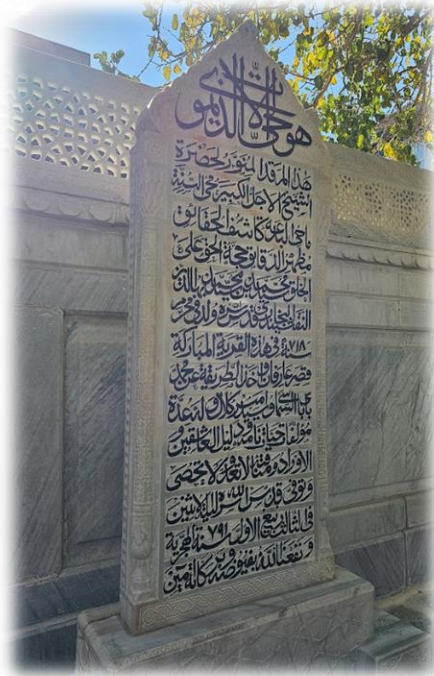 هو الحي الذي لا يموت
هذا المرقد المنور لحضرة
الشيخ الاجل الكبير محي السنة
ماحي البدعة كاشف الحقائق
مظهر الدقايق حجة الحق على
الخلق محمد بن محمد بهاء الدين
النقشبند البخاري قدس سره ولد في محرم
سنة ٧١٨ في هذه القرية المباركة
قصر عارفان واخذ الطريقة عن محمد
بابا السماسي و امير كلال وله عدة
مؤلفات حياتنامه و دليل العاشقين و
الاوراد ومناقبه لا تعد ولا تحصى
وتوفى قدس الله سره ليلة الاثنين
في الثالث ربيع الاول سنة ٧٩١ الهجرية
ونفعنا الله بفيوضه وبركاته آمين